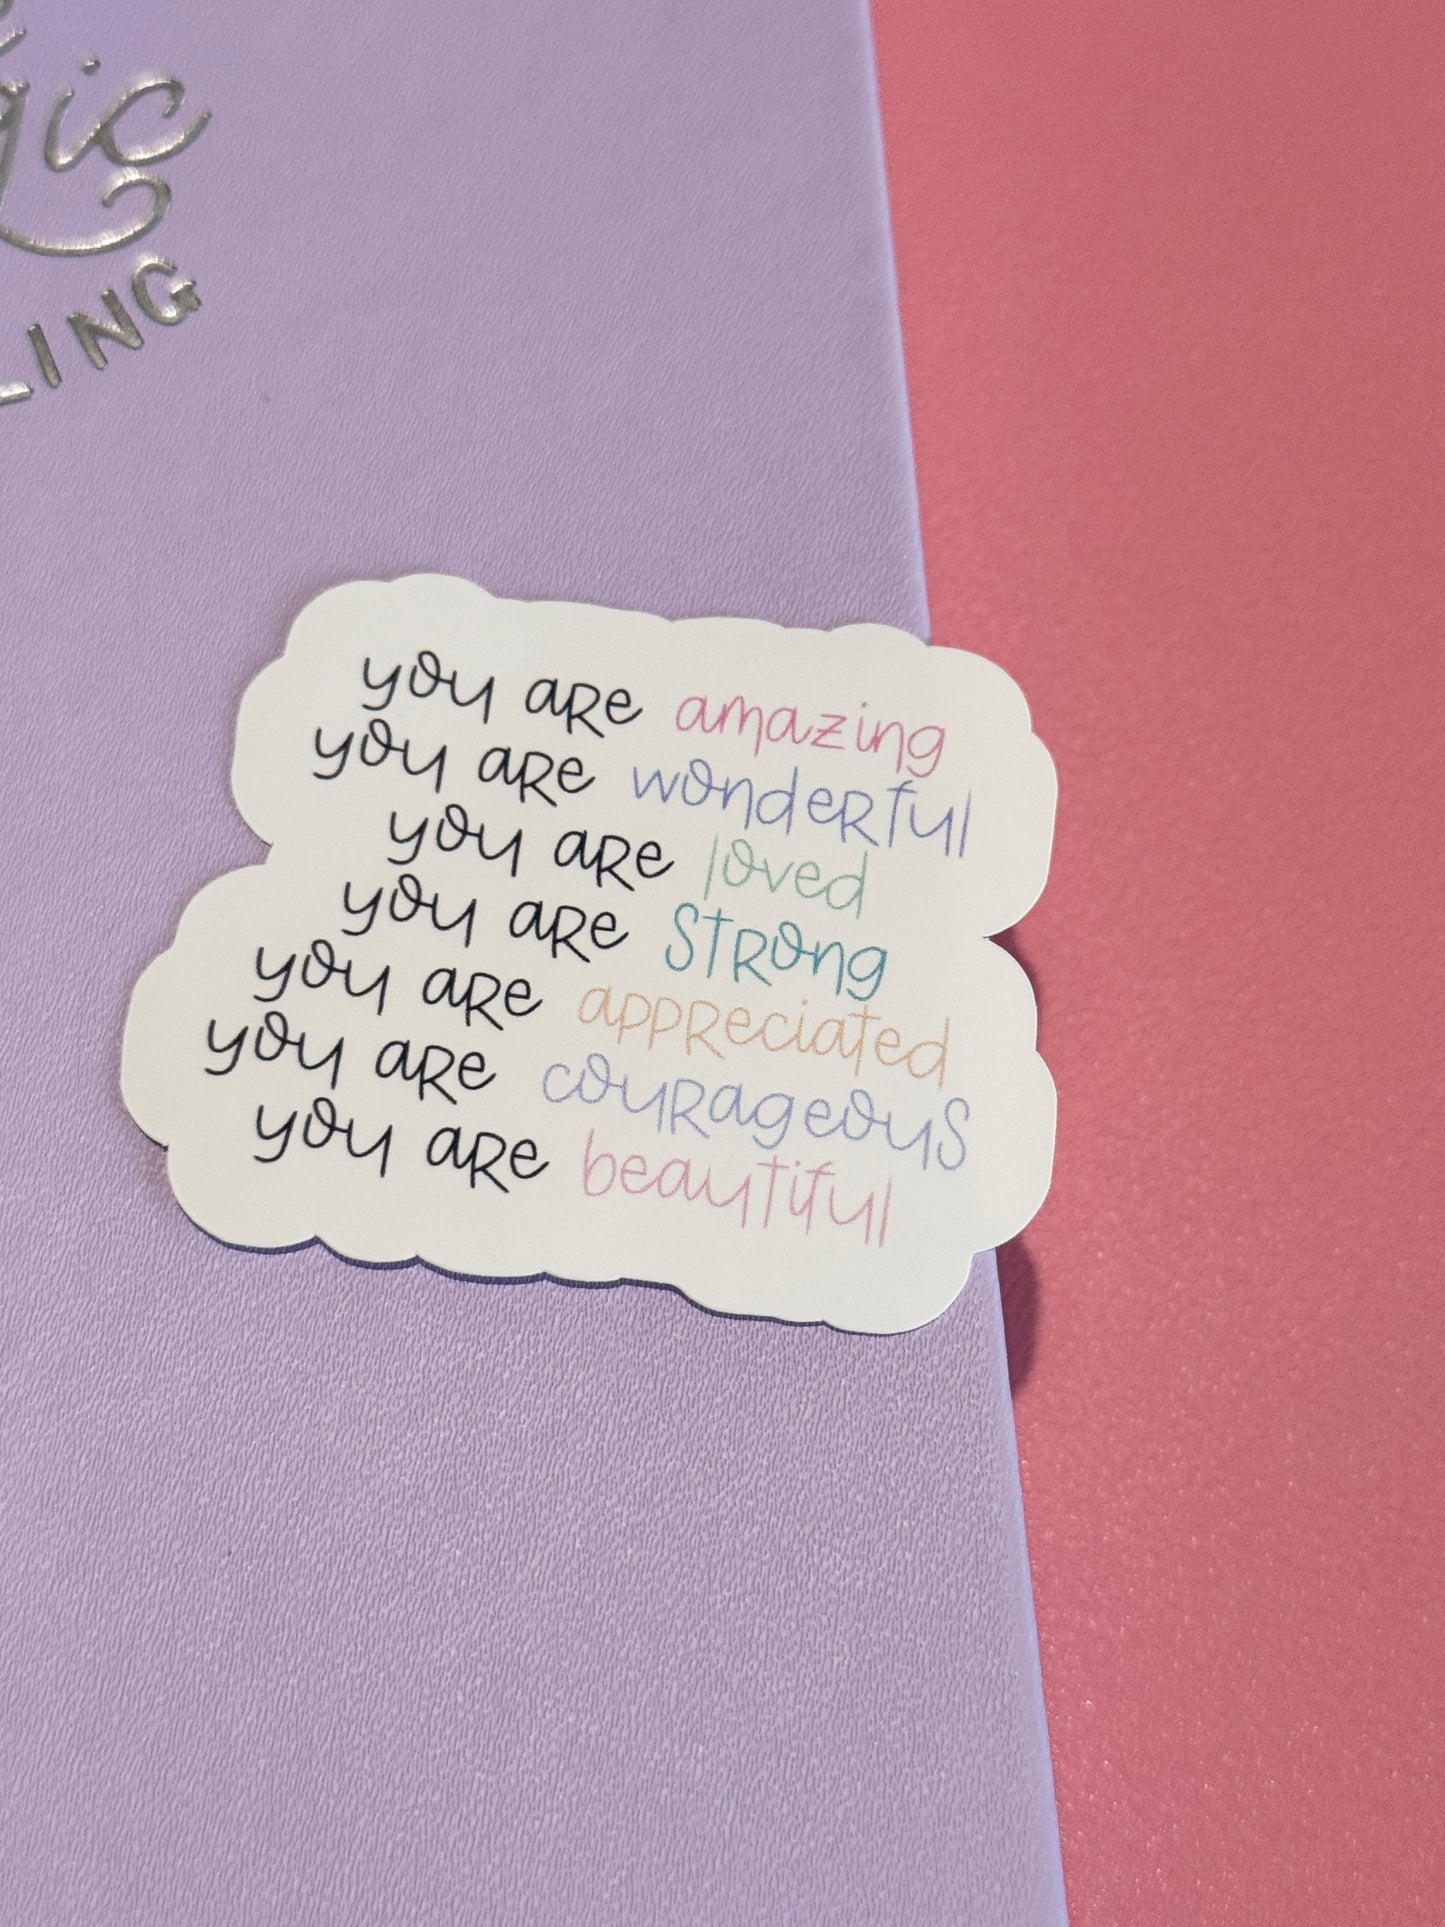 gic
LING
you are amazing
you are wonderful
you are loved
you are strong
you are appreciated
you are courageous
you are beautiful